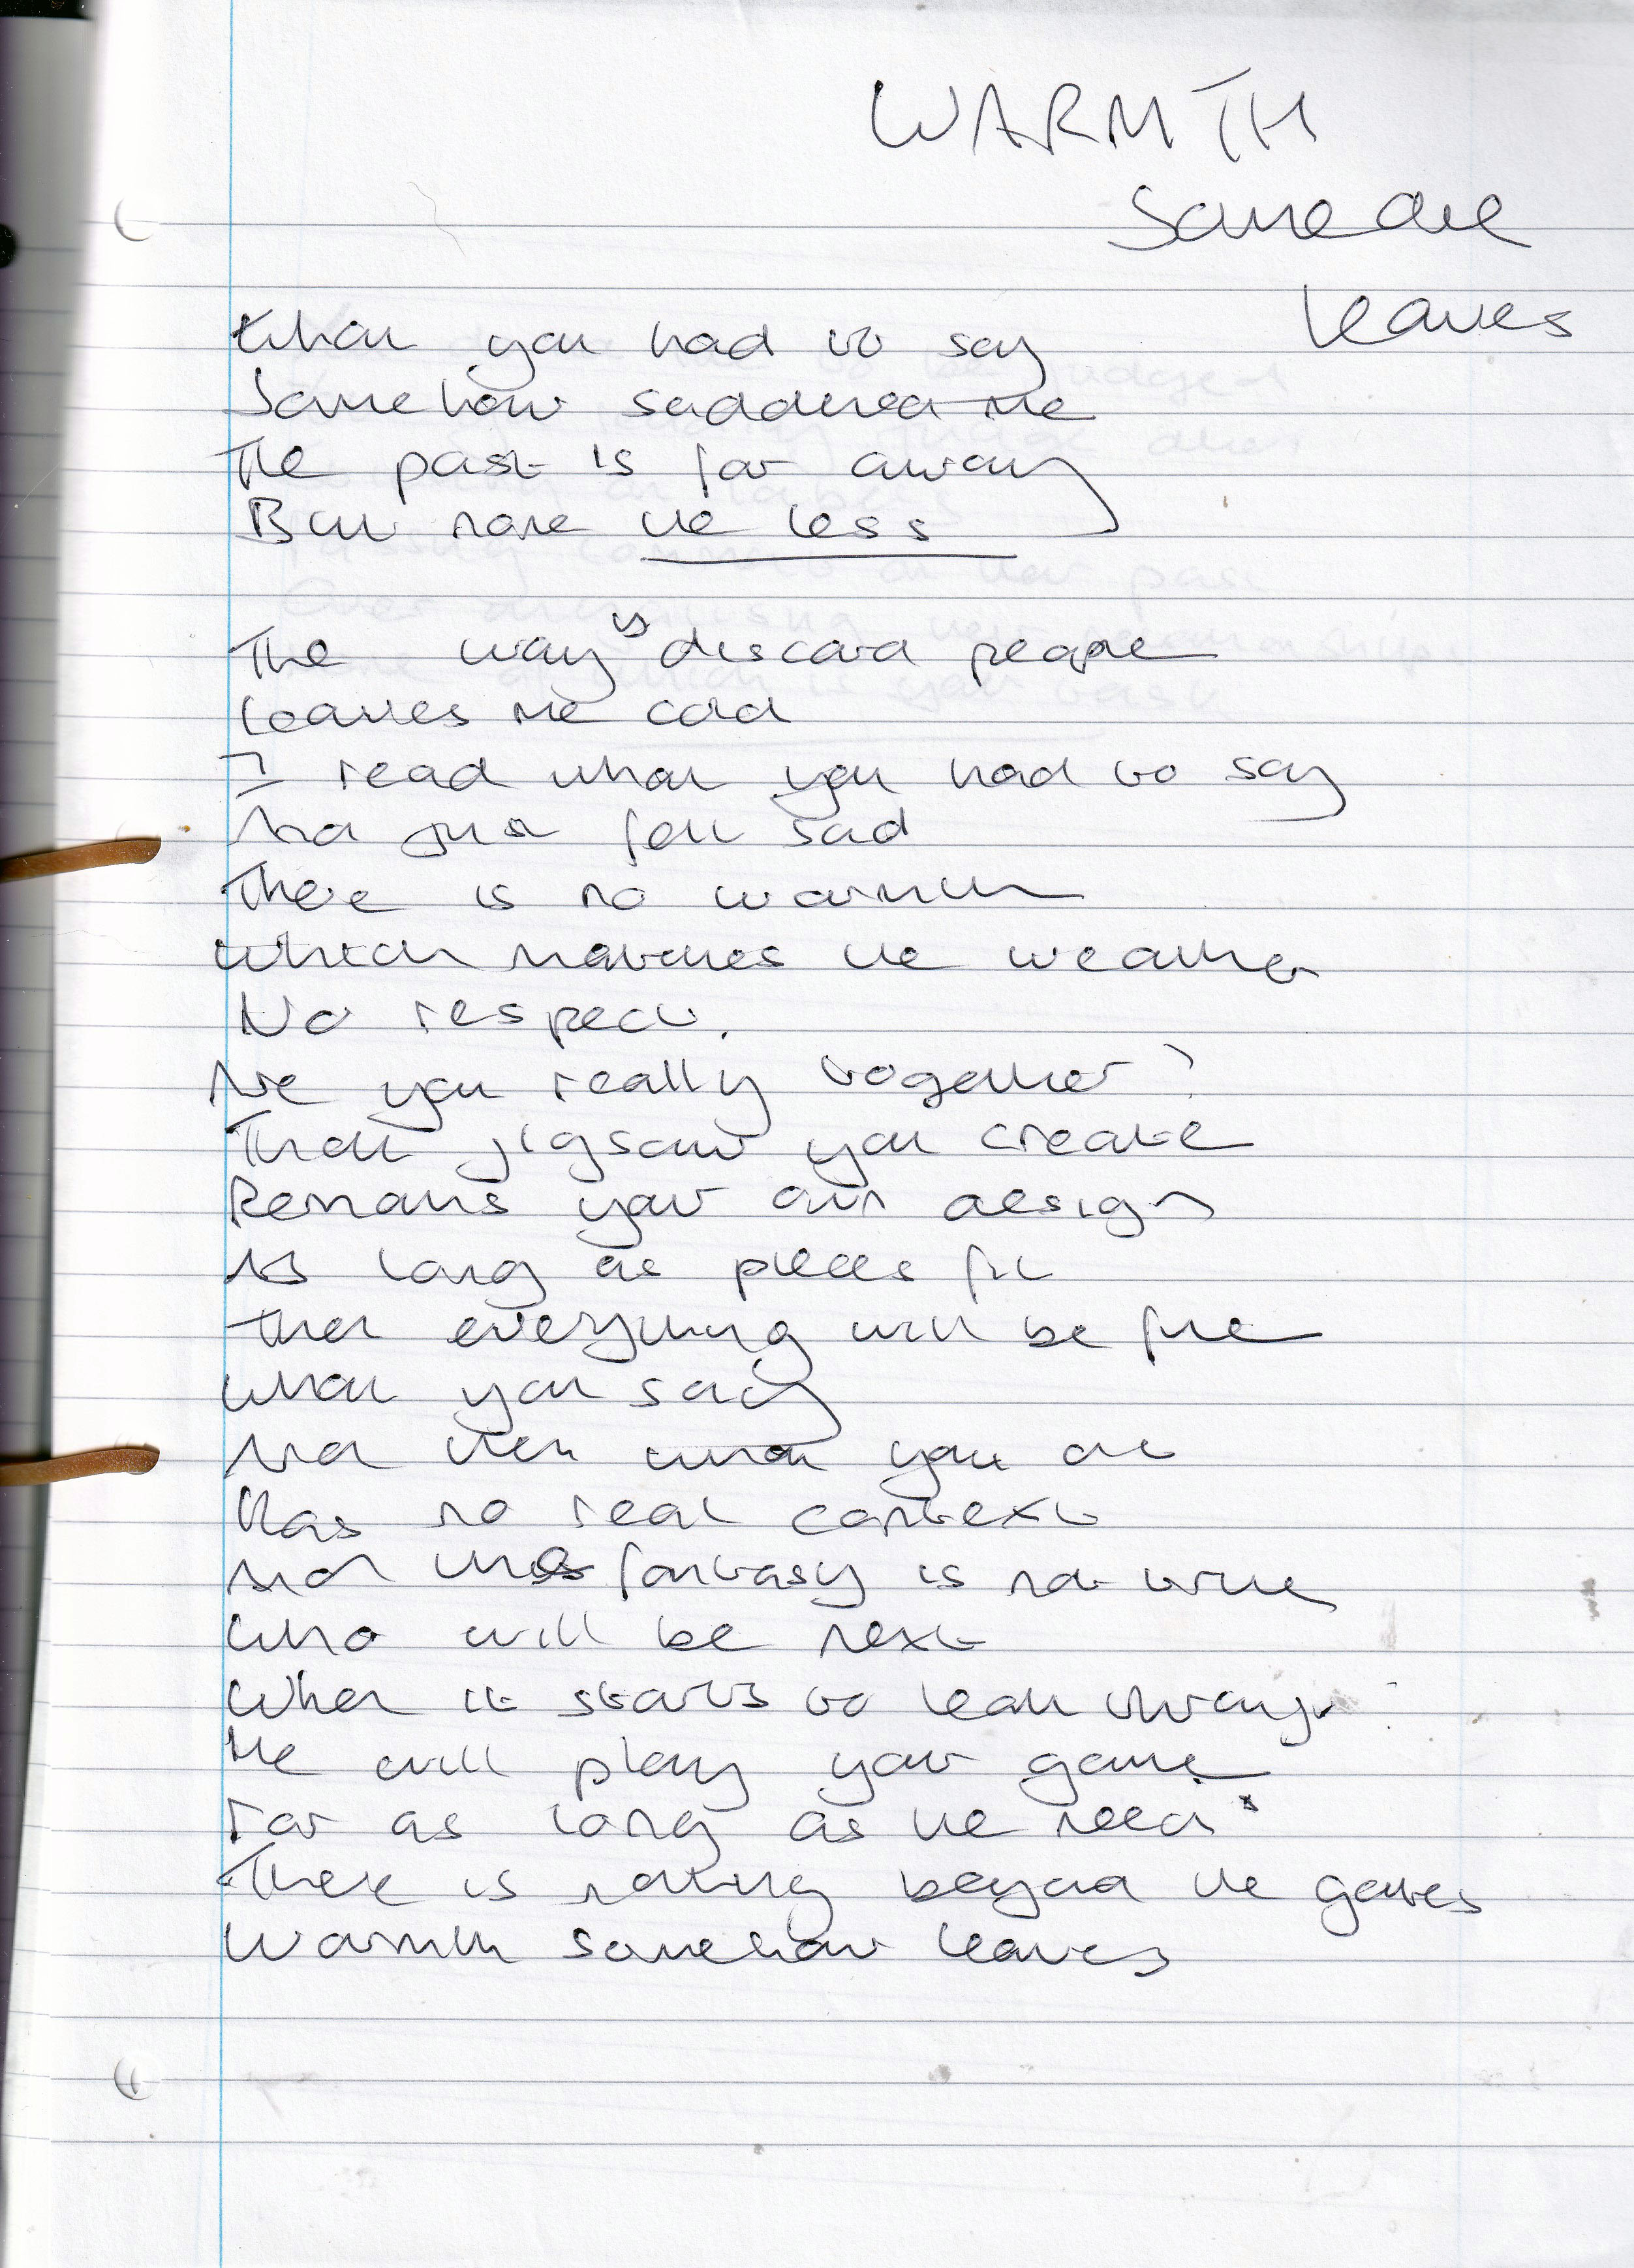 WARMTH
Someone
leaves
What you had to say
Somehow saddened me
The past is far away
But none the less
The way is discard people
Leaves me cold
I read what you had to say
And just felt sad
There is no warmth
Which matches the weather
No respect.
Are you really together?
That jigsaw you create
Remains your own design
As long as pieces fit
Then everything will be fine
What you say
And then what you do
Has no real context
And this fantasy is not true
Who will be next
When it starts to leak through
He will play your game
For as long as he needs
There is nothing beyond the gates
Warmth somehow leaves